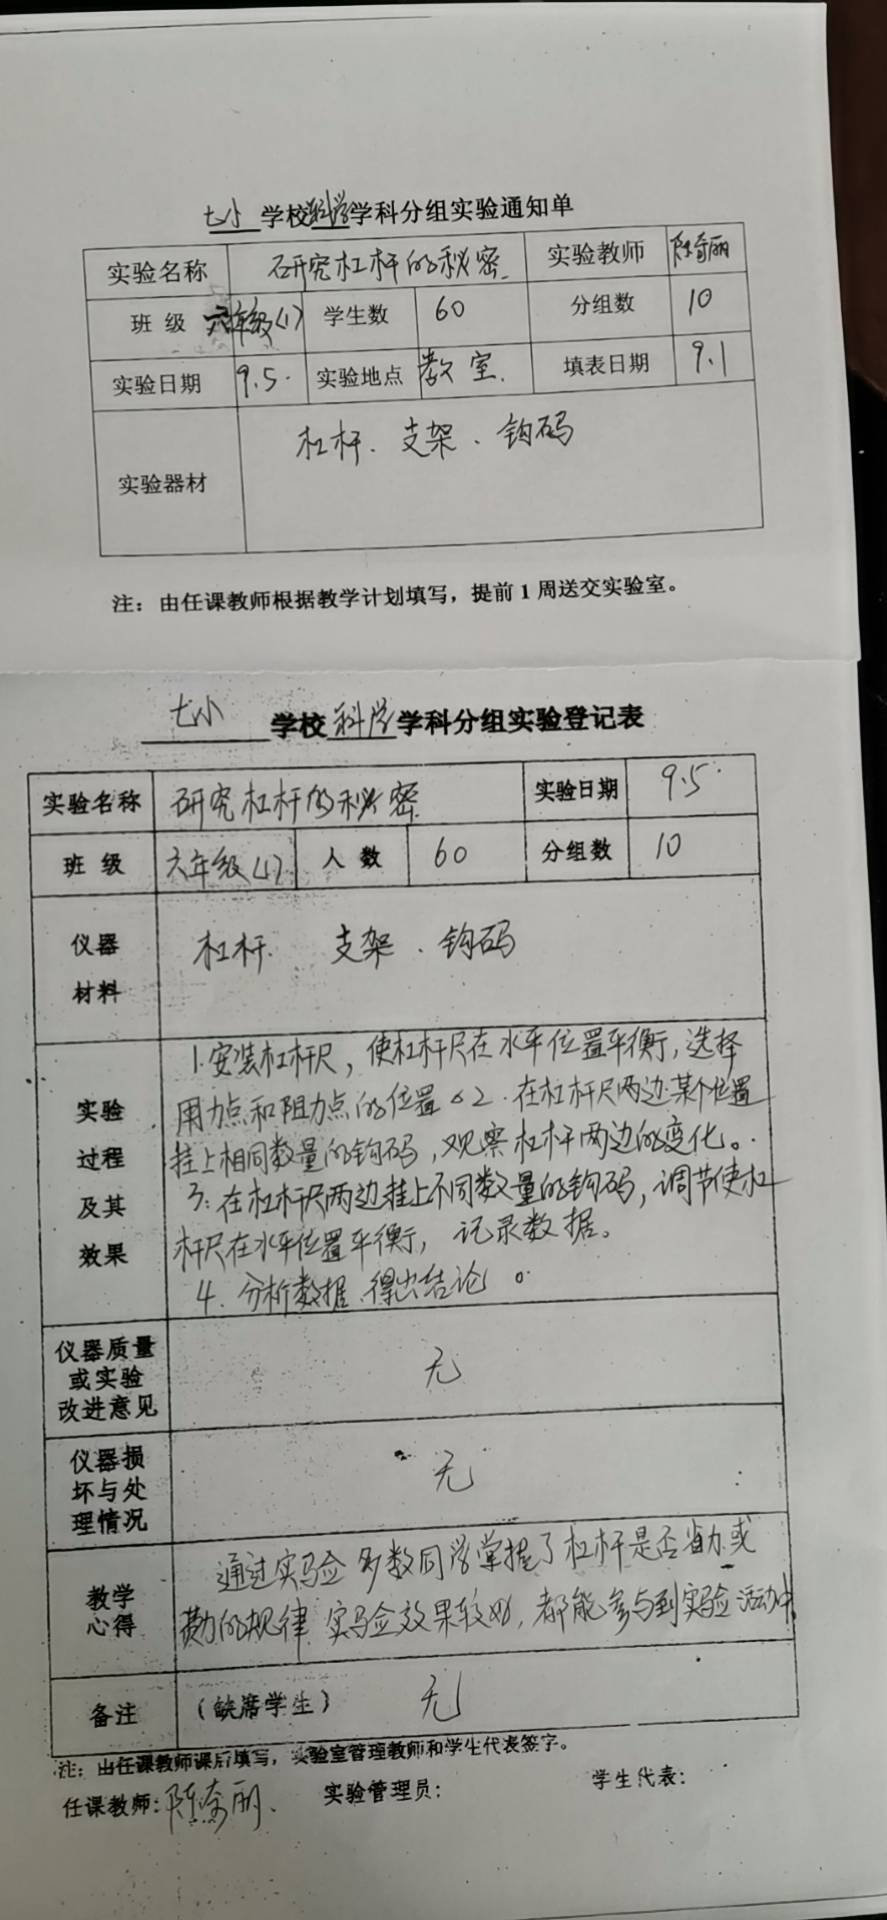 七小 学校科学学科分组实验通知单
实验名称 研究杠杆的秘密. 实验教师 陈奇丽
班 级 六年级(1) 学生数 60 分组数 10
实验日期 9.5. 实验地点 教室. 填表日期 9.1
实验器材 杠杆. 支架、钩码
注：由任课教师根据教学计划填写，提前1周送交实验室。
七小 学校科学学科分组实验登记表
实验名称 研究杠杆的秘密 实验日期 9.5.
班 级 六年级(1) 人 数 60 分组数 10
仪器
材料
杠杆. 支架、钩码
实验
过程
及其
效果
1.安装杠杆尺，使杠杆尺在水平位置平衡，选择
用力点和阻力点的位置。2.在杠杆尺两边某个位置
挂上相同数量的钩码，观察杠杆两边的变化。
3:在杠杆尺两边挂上不同数量的钩码，调节使杠
杆尺在水平位置平衡，记录数据。
4.分析数据.得出结论。
仪器质量
或实验
改进意见
无
仪器损
坏与处
理情况
无
教学
心得
通过实验 多数同学掌握了杠杆是否省力或
费力的规律.实验效果较好，都能参与到实验活动中.
备注 （缺席学生） 无
注：由任课教师课后填写，实验室管理教师和学生代表签字。
任课教师：陈奇丽. 实验管理员： 学生代表：